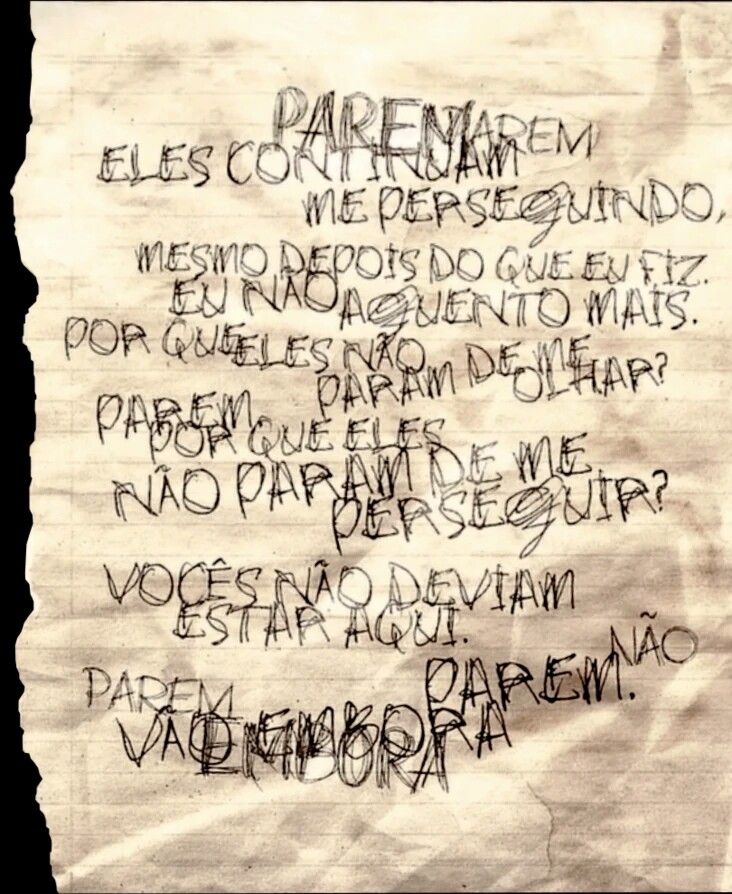 PAREM PAREM
ELES CONTINUAM
ME PERSEGUINDO,
MESMO DEPOIS DO QUE EU FIZ.
EU NÃO AGUENTO MAIS.
POR QUE ELES NÃO
PARAM DE ME
OLHAR?
PAREM.
POR QUE ELES
NÃO PARAM DE ME
PERSEGUIR?
VOCÊS NÃO DEVIAM
ESTAR AQUI.
NÃO
PAREM PAREM.
VÃO EMBORA
EMBORA